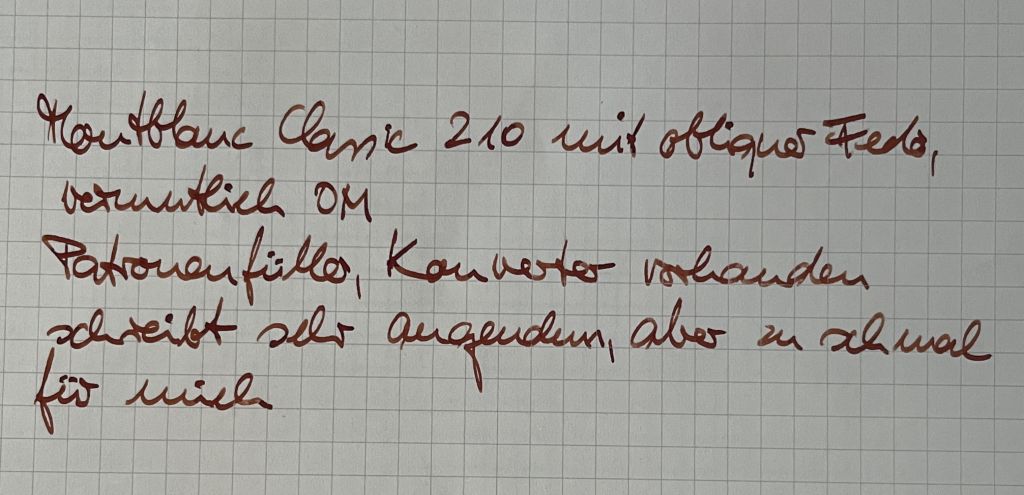 Montblanc Classic 210 mit obliquer Feder,
vermutlich OM
Patronenfüller, Konverter vorhanden
schreibt sehr angenehm, aber zu schmal
für mich